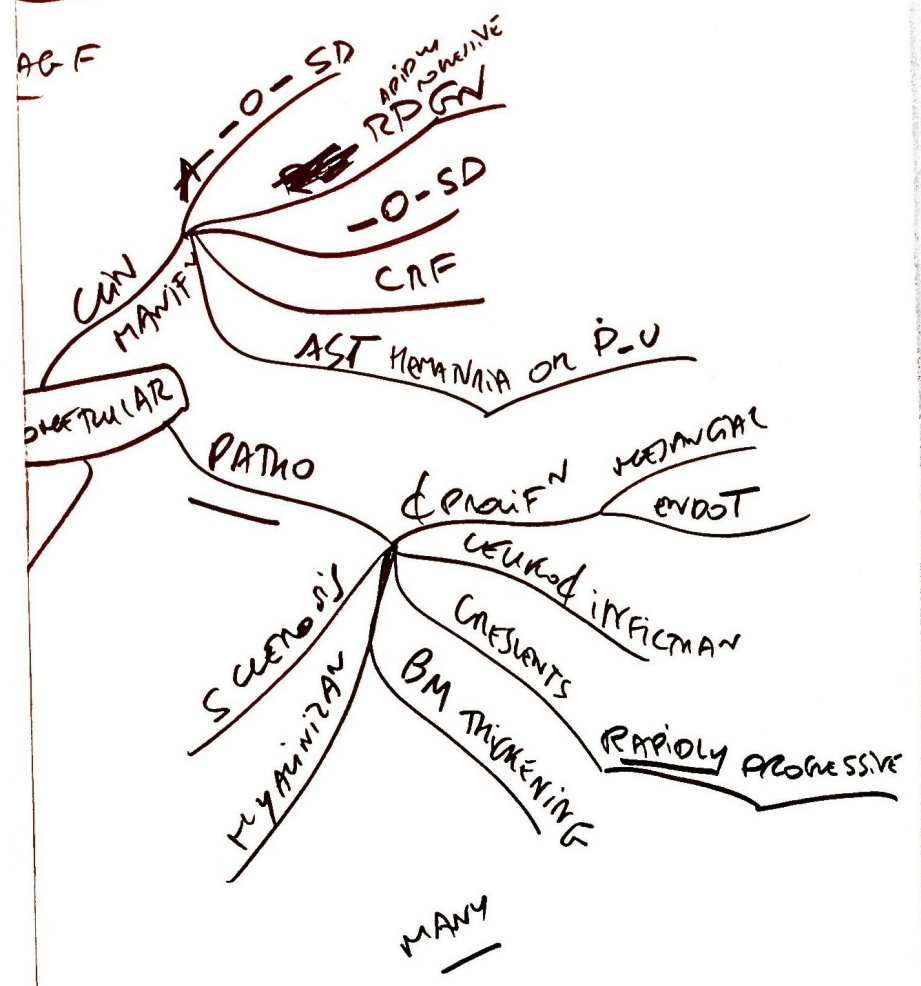 AGF
A--O-SD
RAPIDLY
PROGRESSIVE
RPGN
-O-SD
CRF
CLIN
MANIFN
AST HEMATURIA OR P-U
OMERULAR
PATHO
¢ PROLIFN MESANGIAL
ENDOT
LEUKO¢ INFILTRAN
CRESCENTS
RAPIDLY PROGRESSIVE
BM THICKENING
HYALINIZAN
SCLEROSIS
MANY